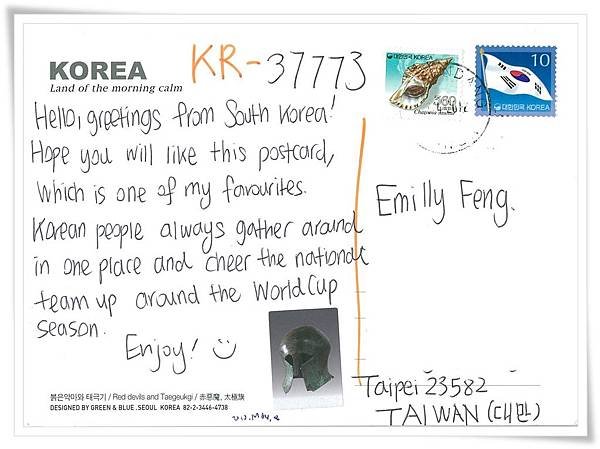 KOREA
Land of the morning calm
KR-37773
Hello, greetings from South Korea!
Hope you will like this postcard,
which is one of my favourites.
Korean people always gather around
in one place and cheer the national
team up around the World Cup
season.
Enjoy!
붉은악마와 태극기 / Red devils and Taegeukgi / 赤惡魔, 太極旗
DESIGNED BY GREEN & BLUE .SEOUL KOREA 82-2-3446-4738
대한민국 KOREA
360
10
대한민국 KOREA
Emilly Feng.
Taipei 23582
TAIWAN (대만)